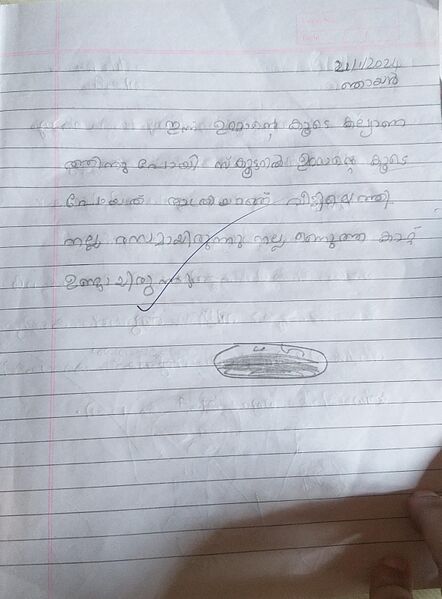 21/1/2024
ഞായർ
ഇന്ന് ഉമ്മാന്റെ കൂടെ കല്യാണ
ത്തിന്നു പോയി സ്കൂട്ടറിൽ ഉമ്മന്റെ കൂടെ
പോയത് രാത്രിയാണ് വീട്ടിലെത്തി
നല്ല രസമായിരുന്നു നല്ല തണുത്ത കാറ്റ്
ഉണ്ടായിരുന്നു